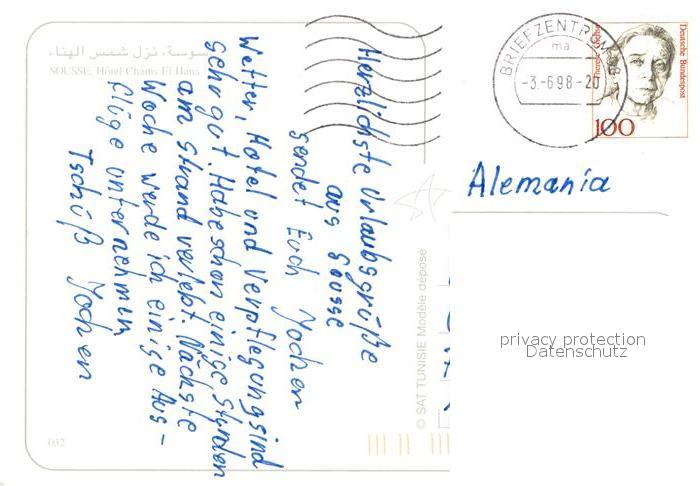 سوسة، نزل شمس الهناء
SOUSSE, Hôtel Chams El Hana
Herzlichste Urlaubsgrüße
aus Sousse
sendet Euch Jochen
Wetter, Hotel und Verpflegung sind
sehr gut. Habe schon einige Stunden
am Strand verlebt. Nächste
Woche werde ich einige Aus-
flüge unternehmen
Tschüß Jochen
032
© SAT TUNISIE Modèle déposé
BRIEFZENTRUM
ma
-3.-6.98-20
Deutsche Bundespost
100
Alemania
privacy protection
Datenschutz